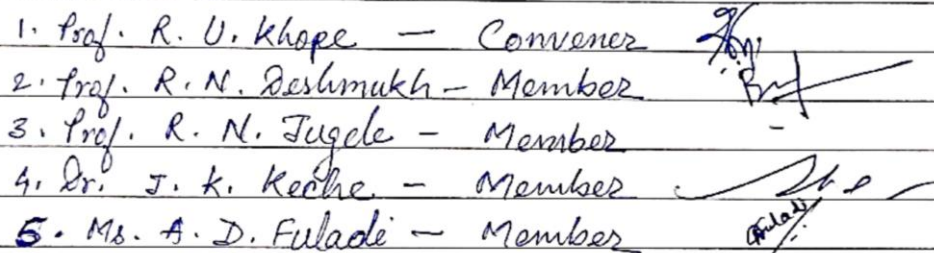 1. Prof. R. U. Khope — Convener
2. Prof. R. N. Deshmukh — Member
3. Prof. R. N. Jugele — Member -
4. Dr. J. K. Keche — Member
5. Ms. A. D. Fuladi — Member Fuladi